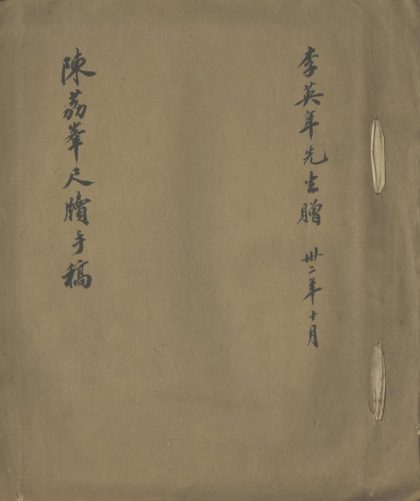 李英年先生贈 卅二年十月
陳荔峯尺牘手稿